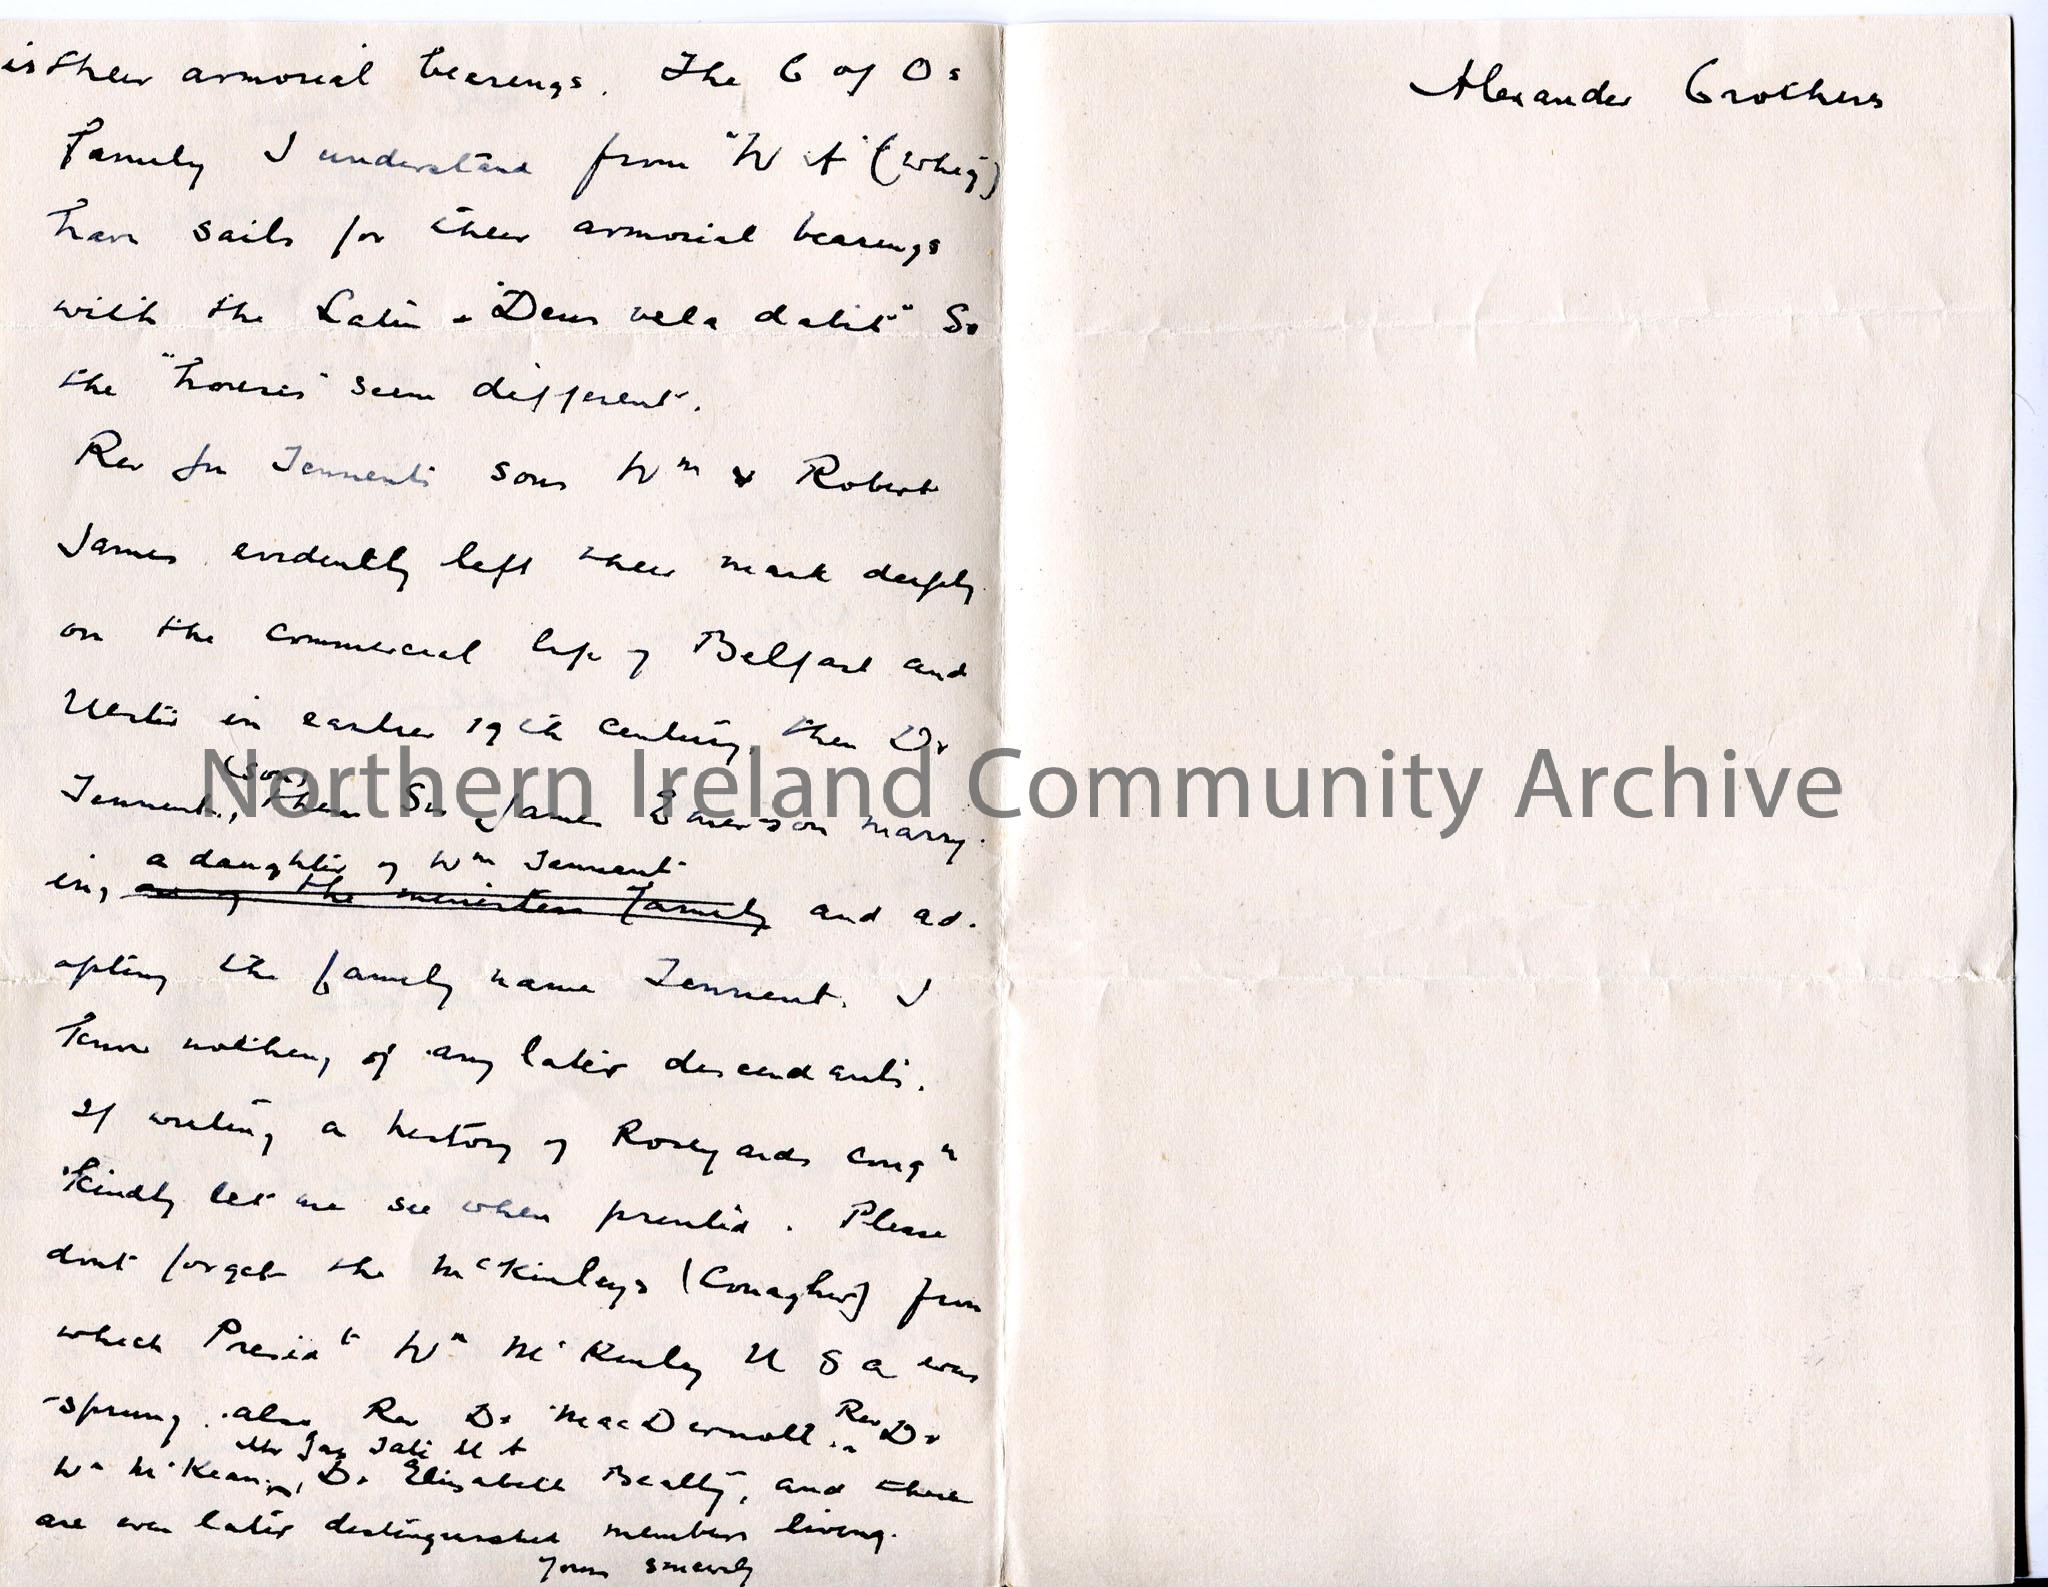 is their armorial bearings. The C of Os
family I understand from "N A" (Whig)
have sails for their armorial bearings
with the Latin - "Deus vela dabit" So
the "houses" seem different.
Rev Jn Tennents sons Wm & Robert
James evidently left their mark deeply
on the commercial life of Belfast and
Ulster in earlier 19th century, then Dr
(son)
Tennent, then Sir James Emerson marry-
a daughter of Wm Tennent
ing of the ministers family and ad-
opting the family name Tennent. I
know nothing of any later descendants.
If writing a history of Roseyards congn
kindly let me see when printed. Please
dont forget the McKinleys (Conagher) from
which Presidt Wm McKinley U S A was
sprung. also Rev Dr MacDermott. Rev Dr
Mr Jas Tate M A
Wm McKean, Dr Elizabeth Beatty, and there
are even later distinguished members living.
Yours sincerely
Alexander Crothers
Northern Ireland Community Archive